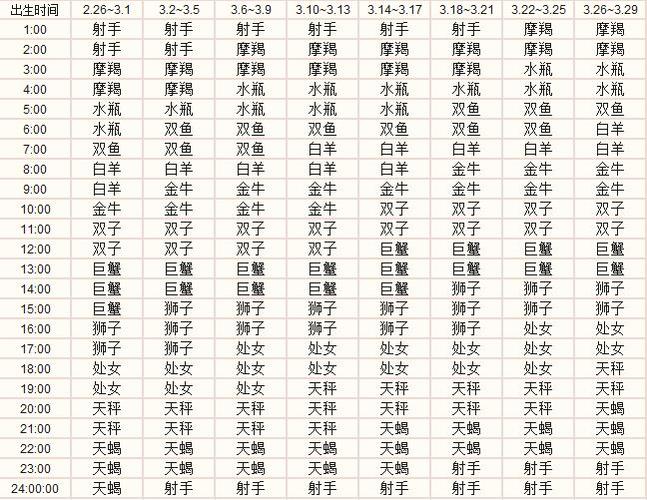 出生时间 2.26~3.1 3.2~3.5 3.6~3.9 3.10~3.13 3.14~3.17 3.18~3.21 3.22~3.25 3.26~3.29
1:00 射手 射手 射手 射手 射手 射手 摩羯 摩羯
2:00 射手 射手 摩羯 摩羯 摩羯 摩羯 摩羯 摩羯
3:00 摩羯 摩羯 摩羯 摩羯 摩羯 摩羯 水瓶 水瓶
4:00 摩羯 摩羯 水瓶 水瓶 水瓶 水瓶 水瓶 水瓶
5:00 水瓶 水瓶 水瓶 水瓶 水瓶 双鱼 双鱼 双鱼
6:00 水瓶 双鱼 双鱼 双鱼 双鱼 双鱼 双鱼 白羊
7:00 双鱼 双鱼 双鱼 白羊 白羊 白羊 白羊 白羊
8:00 白羊 白羊 白羊 白羊 白羊 金牛 金牛 金牛
9:00 白羊 金牛 金牛 金牛 金牛 金牛 金牛 金牛
10:00 金牛 金牛 金牛 金牛 双子 双子 双子 双子
11:00 双子 双子 双子 双子 双子 双子 双子 双子
12:00 双子 双子 双子 双子 巨蟹 巨蟹 巨蟹 巨蟹
13:00 巨蟹 巨蟹 巨蟹 巨蟹 巨蟹 巨蟹 巨蟹 巨蟹
14:00 巨蟹 巨蟹 巨蟹 巨蟹 巨蟹 狮子 狮子 狮子
15:00 巨蟹 狮子 狮子 狮子 狮子 狮子 狮子 狮子
16:00 狮子 狮子 狮子 狮子 狮子 狮子 处女 处女
17:00 狮子 狮子 处女 处女 处女 处女 处女 处女
18:00 处女 处女 处女 处女 处女 处女 处女 天秤
19:00 处女 处女 处女 天秤 天秤 天秤 天秤 天秤
20:00 天秤 天秤 天秤 天秤 天秤 天秤 天秤 天蝎
21:00 天秤 天秤 天秤 天秤 天蝎 天蝎 天蝎 天蝎
22:00 天蝎 天蝎 天蝎 天蝎 天蝎 天蝎 天蝎 天蝎
23:00 天蝎 天蝎 天蝎 天蝎 天蝎 射手 射手 射手
24:00:00 天蝎 射手 射手 射手 射手 射手 射手 射手